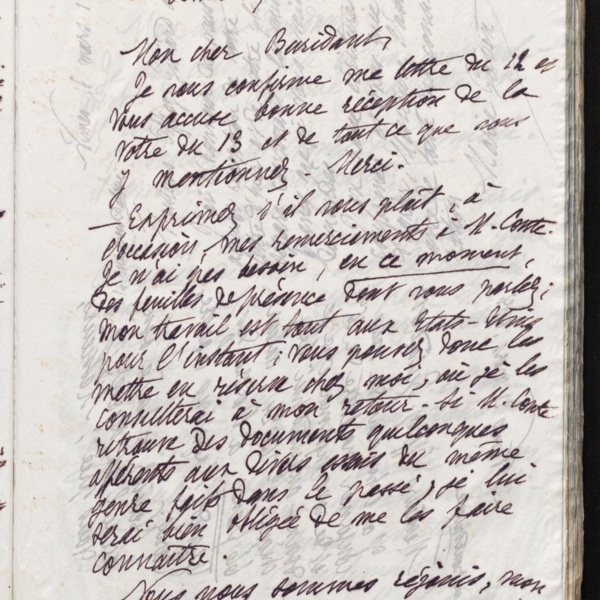 Mon cher Buridant,
Je vous confirme ma lettre du 12 et
vous accuse bonne réception de la
votre du 13 et de tout ce que vous
y mentionnez. Merci.
— Exprimez s'il vous plaît, à
l'occasion, mes remerciements à M. Conte.
Je n'ai pas besoin, en ce moment,
des feuilles de présence dont vous parlez;
mon travail est tout aux Etats-Unis
pour l'instant; vous pouvez donc les
mettre en réserve chez moi, où je les
consulterai à mon retour. Si M. Conte
retrouve des documents quelconques
afférents aux divers essais du même
genre faits dans le passé, je lui
serai bien obligé de me les faire
connaître.
Nous nous sommes réjouis, mon